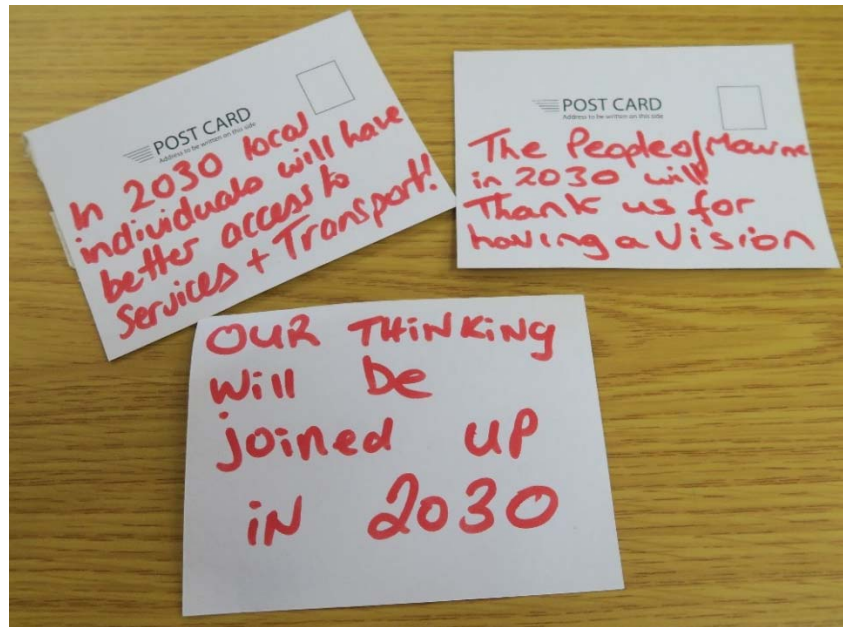 POST CARD
Address to be written on this side
In 2030 local
individuals will have
better access to
Services + Transport!
POST CARD
Address to be written on this side
The People of Mourne
in 2030 will
Thank us for
having a Vision
OUR THiNKiNG
Will be
joined up
iN 2030